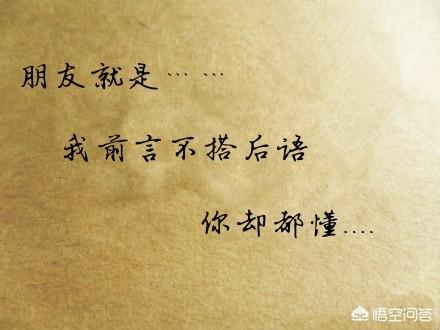 朋友就是……
我前言不搭后语
你却都懂....
悟空问答